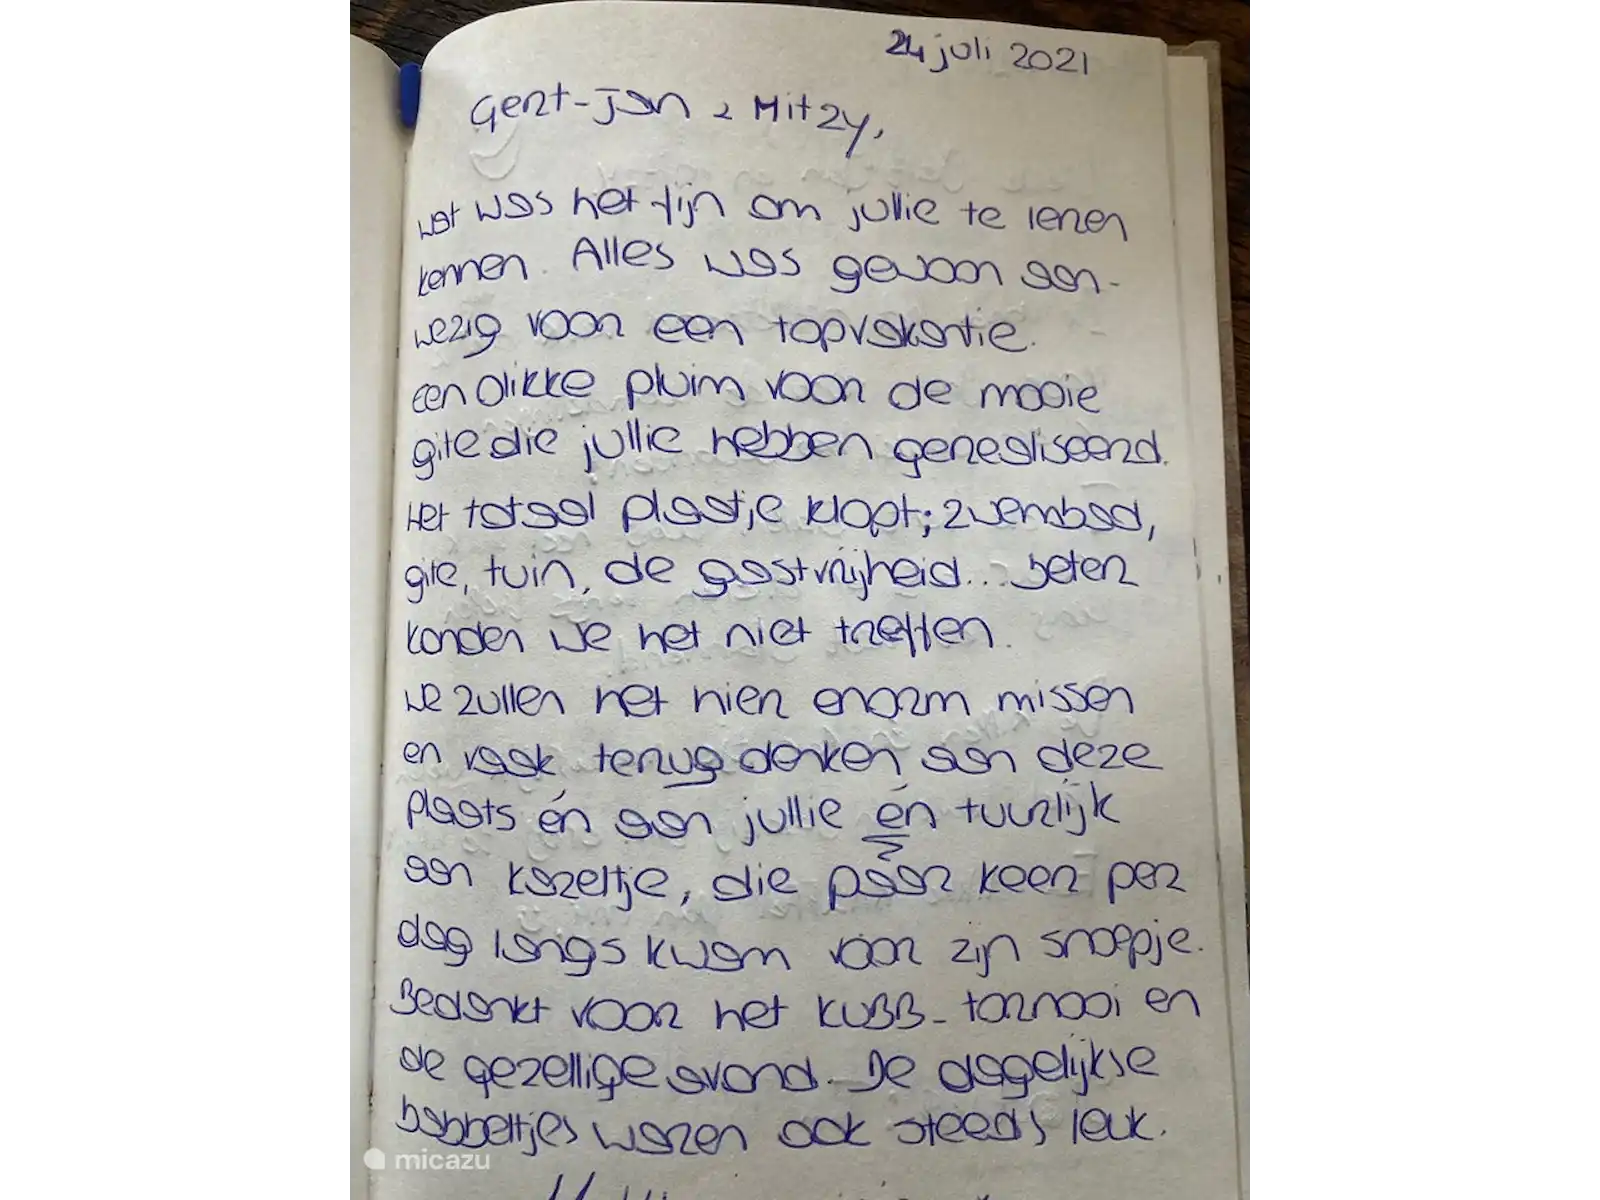 24 juli 2021
Gert-Jan, Mitzy,
wat was het fijn om jullie te leren
kennen. Alles was gewoon aan-
wezig voor een topvakantie.
Een dikke pluim voor de mooie
gite die jullie hebben gerealiseerd.
Het totaal plaatje klopt; zwembad,
gite, tuin, de gastvrijheid... beter
konden we het niet treffen.
We zullen het hier enorm missen
en vaak terug denken aan deze
plaats én aan jullie én tuurlijk
aan kareltje, die páár keer per
dag langs kwam voor zijn snoepje.
Bedankt voor het KUBB-tornooi en
de gezellige avond. De dagelijkse
babbeltjes waren ook steeds leuk.
micazu